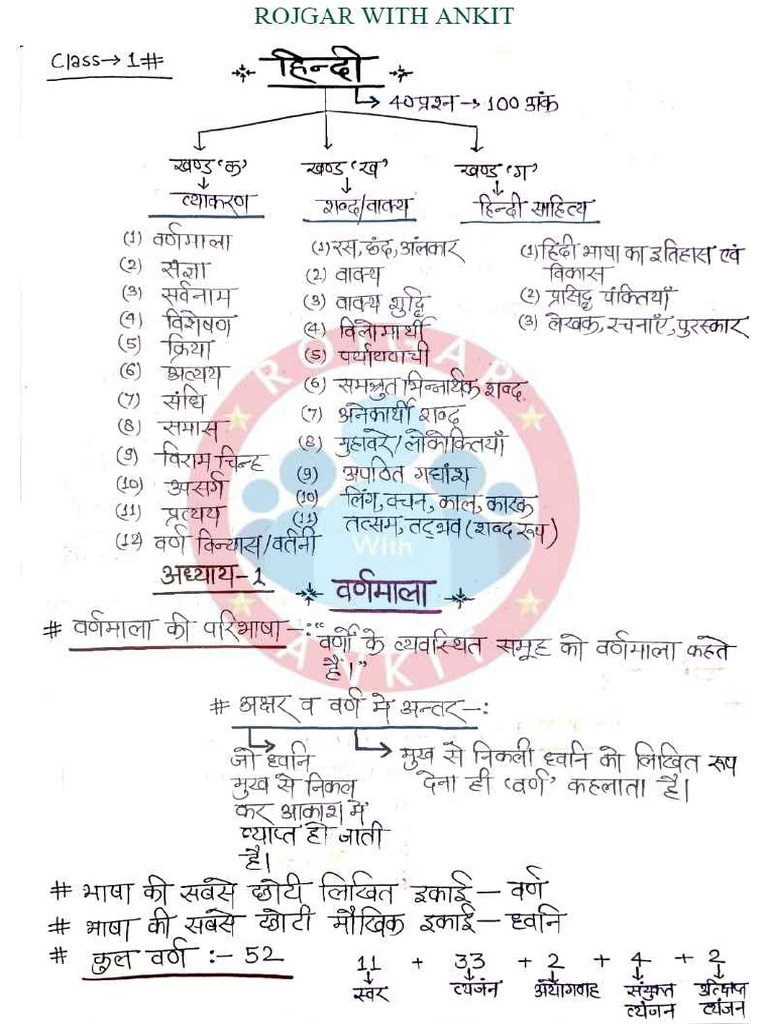 ROJGAR WITH ANKIT
Class→1#
हिन्दी
40 प्रश्न → 100 अंक
खण्ड 'क'
व्याकरण
(1) वर्णमाला
(2) संज्ञा
(3) सर्वनाम
(4) विशेषण
(5) क्रिया
(6) अव्यय
(7) संधि
(8) समास
(9) विराम चिन्ह
(10) उपसर्ग
(11) प्रत्यय
(12) वर्ण विन्यास/वर्तनी
खण्ड 'ख'
शब्द/वाक्य
(1) रस, छंद, अंलकार
(2) वाक्य
(3) वाक्य शुद्धि
(4) विलोमार्थी
(5) पर्यायवाची
(6) समश्रुत भिन्नार्थक शब्द
(7) अनेकार्थी शब्द
(8) मुहावरे/लोकोक्तियाँ
(9) अपठित गद्यांश
(10) लिंग, वचन, काल, कारक
(11) तत्सम, तद्भव (शब्द रूप)
खण्ड 'ग'
हिन्दी साहित्य
(1) हिंदी भाषा का इतिहास एवं
विकास
(2) प्रसिद्ध पंक्तियाँ
(3) लेखक, रचनाएँ, पुरस्कार
अध्याय-1
वर्णमाला
# वर्णमाला की परिभाषा -: "वर्णों के व्यवस्थित समूह को वर्णमाला कहते
हैं।"
# अक्षर व वर्ण में अन्तर -:
जो ध्वनि
मुख से निकल
कर आकाश में
व्याप्त हो जाती
है।
मुख से निकली ध्वनि को लिखित रूप
देना ही 'वर्ण' कहलाता है।
# भाषा की सबसे छोटी लिखित इकाई - वर्ण
# भाषा की सबसे छोटी मौखिक इकाई - ध्वनि
# कुल वर्ण :- 52
11 + 33 + 2 + 4 + 2
स्वर व्यंजन अयोगवाह संयुक्त उत्क्षिप्त
व्यंजन व्यंजन
ROJGAR
With
ANKIT